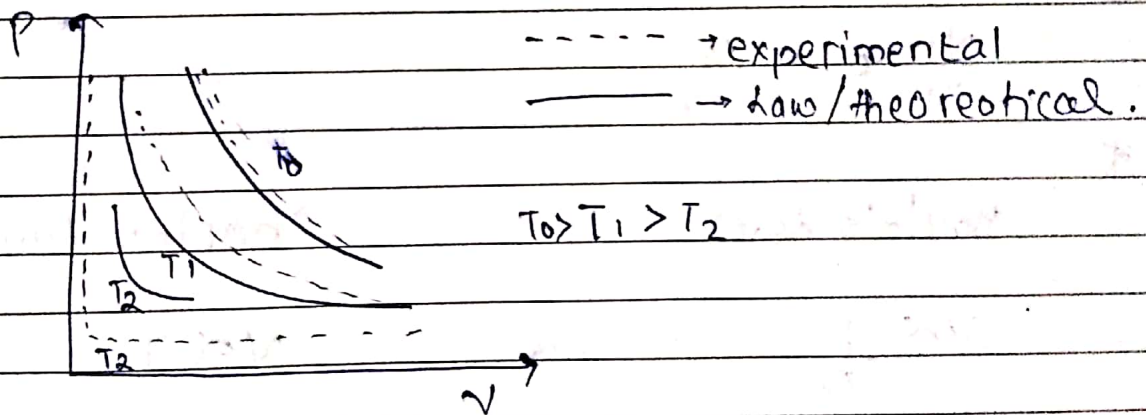 P
- - - - - → experimental
——— → Law/theoreotical.
To
To> T1 > T2
T1
T2
T2
V